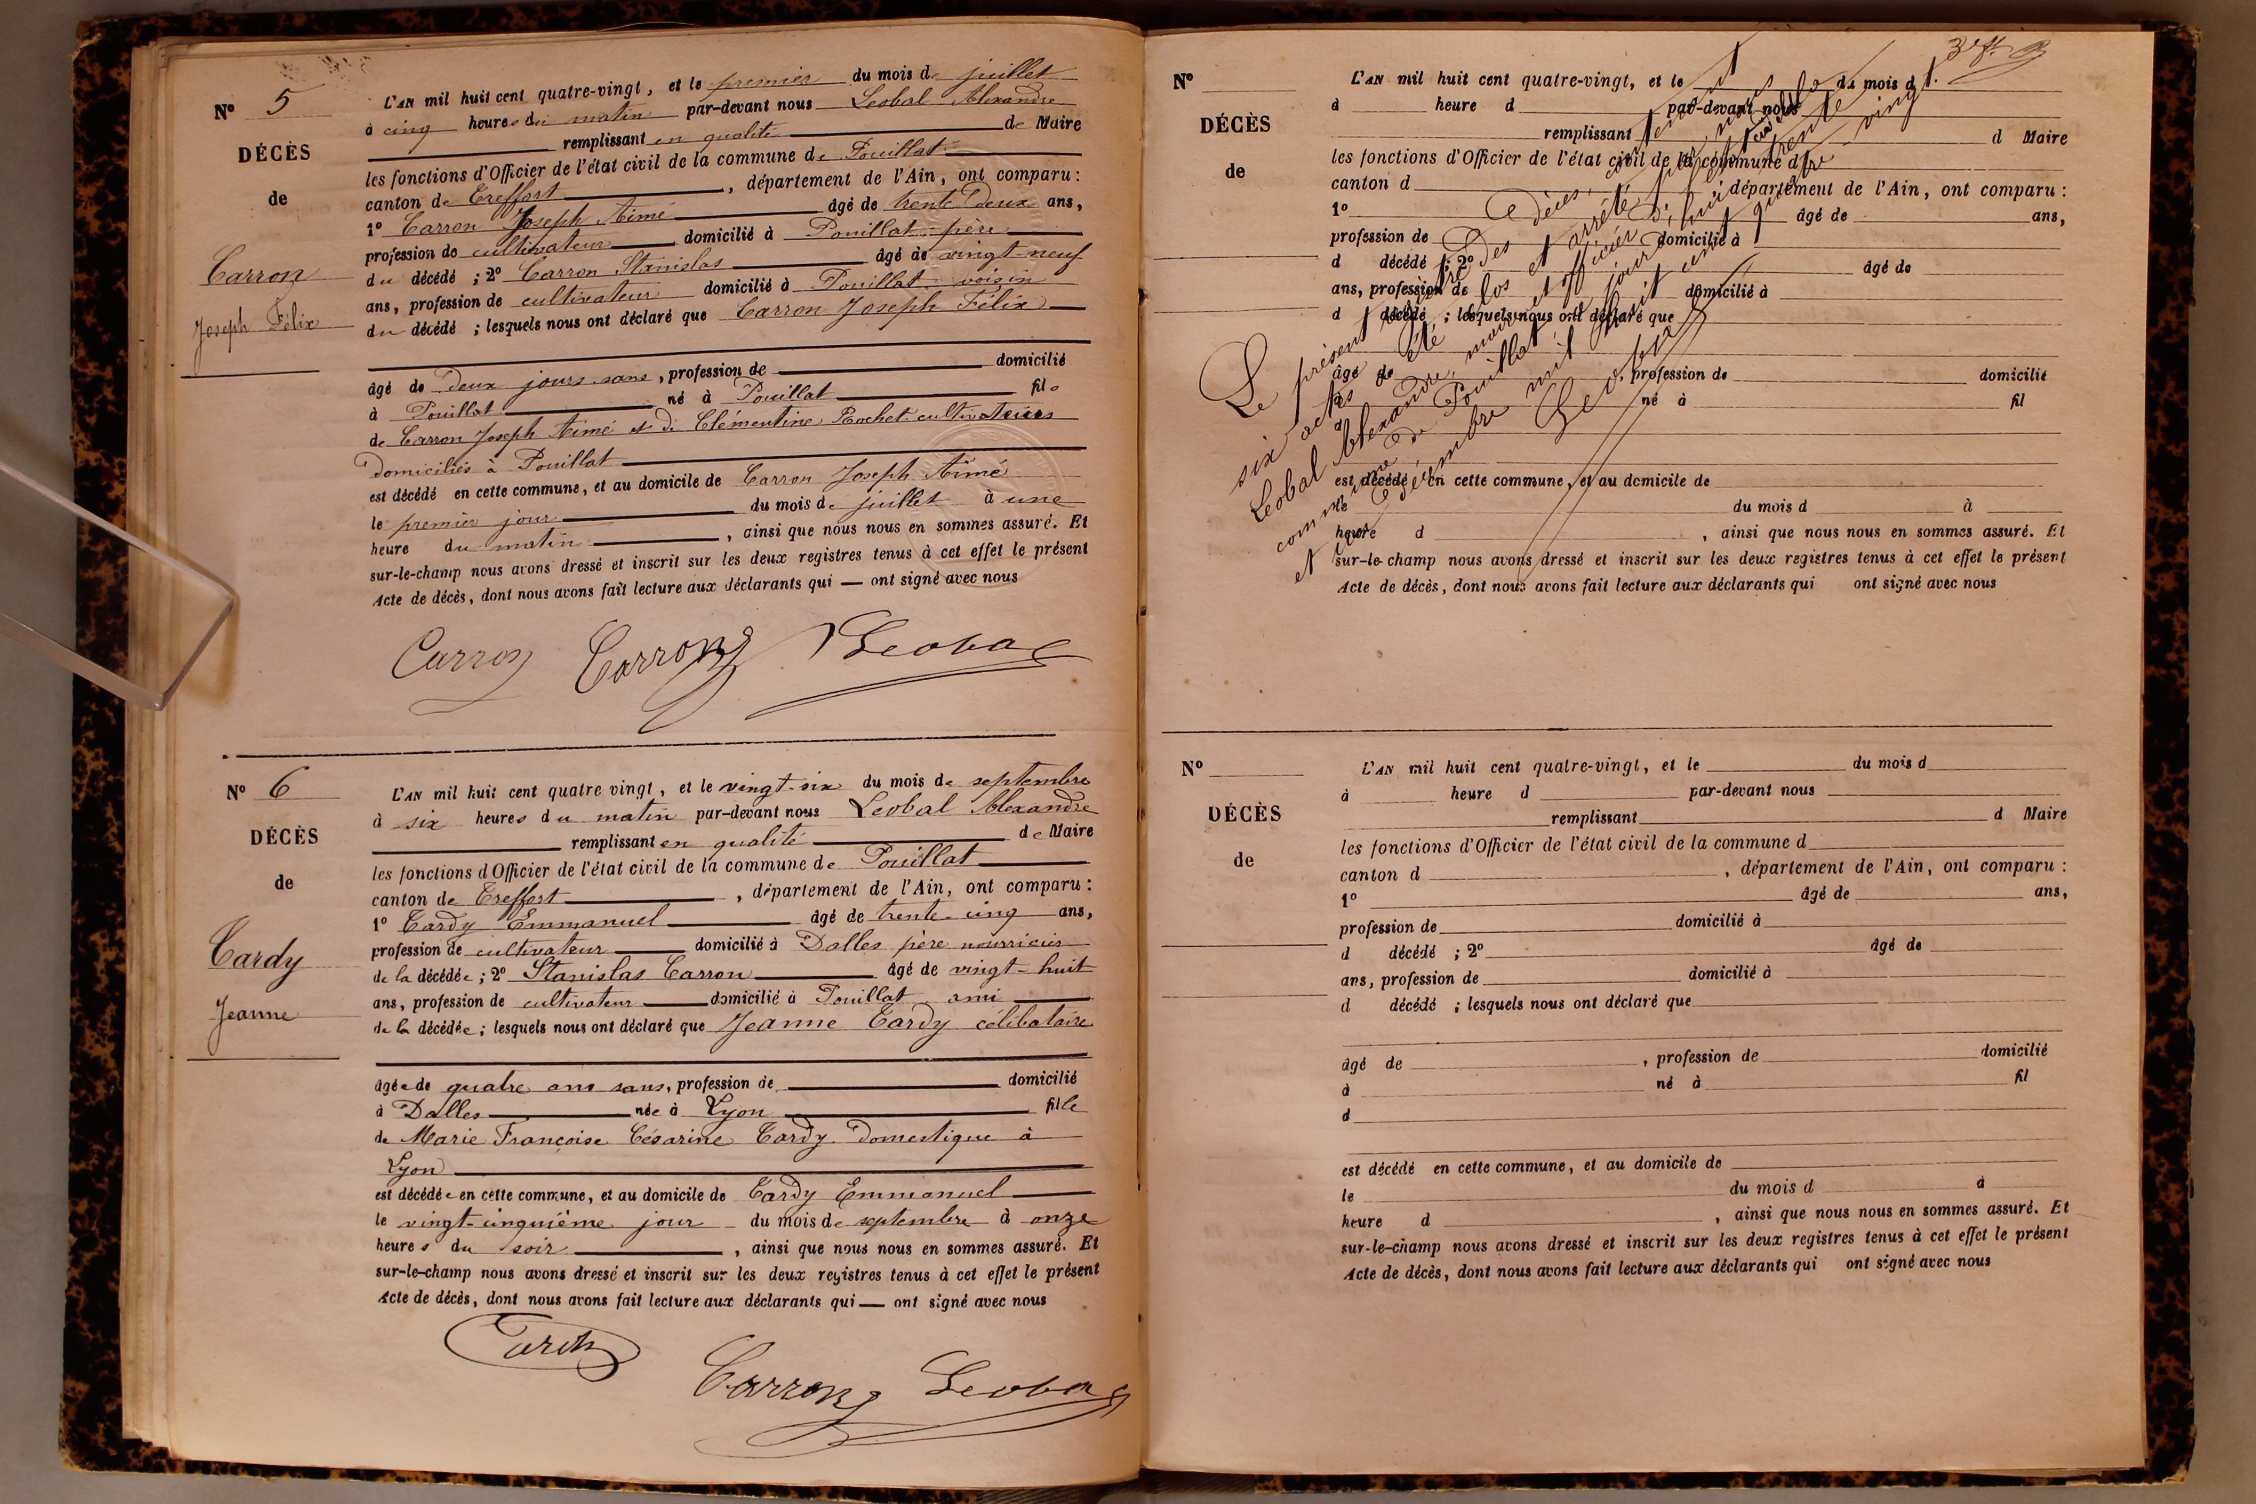 N° 5
DÉCÈS
de
Carron
Joseph Félix
L'AN mil huit cent quatre-vingt, et le premier du mois de juillet
à cinq heures du matin par-devant nous Leobal Alexandre
remplissant en qualité de Maire
les fonctions d'Officier de l'état civil de la commune de Pouillat
canton de Treffort, département de l'Ain, ont comparu :
1° Carron Joseph Aimé âgé de trente deux ans,
profession de cultivateur domicilié à Pouillat père
du décédé ; 2° Carron Stanislas âgé de vingt-neuf
ans, profession de cultivateur domicilié à Pouillat voisin
du décédé ; lesquels nous ont déclaré que Carron Joseph Félix
âgé de deux jours sans, profession de domicilié
à Pouillat né à Pouillat fils
de Carron Joseph Aimé et de Clémentine Rochet cultivateurs
domiciliés à Pouillat
est décédé en cette commune, et au domicile de Carron Joseph Aimé
le premier jour du mois de juillet à une
heure du matin, ainsi que nous nous en sommes assuré. Et
sur-le-champ nous avons dressé et inscrit sur les deux registres tenus à cet effet le présent
Acte de décès, dont nous avons fait lecture aux déclarants qui — ont signé avec nous
Carron Carron Leobal
N° 6
DÉCÈS
de
Tardy
Jeanne
L'AN mil huit cent quatre vingt, et le vingt-six du mois de septembre
à six heures du matin par-devant nous Leobal Alexandre
remplissant en qualité de Maire
les fonctions d'Officier de l'état civil de la commune de Pouillat
canton de Treffort, département de l'Ain, ont comparu :
1° Tardy Emmanuel âgé de trente-cinq ans,
profession de cultivateur domicilié à Dalles père nourricier
de la décédée ; 2° Stanislas Carron âgé de vingt-huit
ans, profession de cultivateur domicilié à Pouillat ami
de la décédée ; lesquels nous ont déclaré que Jeanne Tardy célibataire
âgée de quatre ans sans, profession de domicilié
à Dalles née à Lyon fille
de Marie Françoise Césarine Tardy domestique à
Lyon
est décédée en cette commune, et au domicile de Tardy Emmanuel
le vingt-cinquième jour du mois de septembre à onze
heures du soir, ainsi que nous nous en sommes assuré. Et
sur-le-champ nous avons dressé et inscrit sur les deux registres tenus à cet effet le présent
Acte de décès, dont nous avons fait lecture aux déclarants qui — ont signé avec nous
Tardy
Carron Leobal
N°
DÉCÈS
de
L'AN mil huit cent quatre-vingt, et le du mois d
à heure d par-devant nous
remplissant d Maire
les fonctions d'Officier de l'état civil de la commune d
canton d, département de l'Ain, ont comparu :
1° âgé de ans,
profession de domicilié à
d décédé ; 2° âgé de
ans, profession de domicilié à
d décédé ; lesquels nous ont déclaré que
âgé de, profession de domicilié
à né à fil
d
est décédé en cette commune, et au domicile de
le du mois d à
heure d, ainsi que nous nous en sommes assuré. Et
sur-le-champ nous avons dressé et inscrit sur les deux registres tenus à cet effet le présent
Acte de décès, dont nous avons fait lecture aux déclarants qui ont signé avec nous
Le présent registre des décès, contenant
six actes a été clos et arrêté par nous
Leobal Alexandre, maire et officier de l'état civil de la
commune de Pouillat, ce jourd'hui trente
et un décembre mil huit cent quatre-vingt.
Leobal
N°
DÉCÈS
de
L'AN mil huit cent quatre-vingt, et le du mois d
à heure d par-devant nous
remplissant d Maire
les fonctions d'Officier de l'état civil de la commune d
canton d, département de l'Ain, ont comparu :
1° âgé de ans,
profession de domicilié à
d décédé ; 2° âgé de
ans, profession de domicilié à
d décédé ; lesquels nous ont déclaré que
âgé de, profession de domicilié
à né à fil
d
est décédé en cette commune, et au domicile de
le du mois d à
heure d, ainsi que nous nous en sommes assuré. Et
sur-le-champ nous avons dressé et inscrit sur les deux registres tenus à cet effet le présent
Acte de décès, dont nous avons fait lecture aux déclarants qui ont signé avec nous